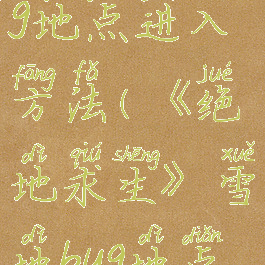 9地点进入
fāng fǎ jué
方法(《绝
dì qiú shēng xuě
地求生》雪
dì dì diǎn
地bug地点